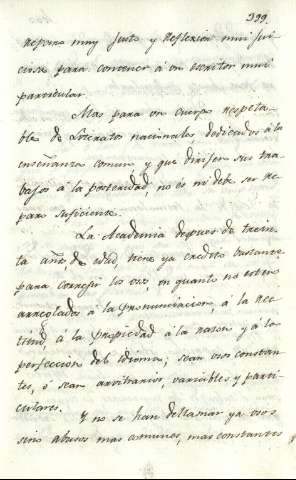 399.
reparo muy justo y reflexion mui
para convencer á un escritor mui
particular.
Mas para un cuerpo respeta-
ble de Literatos nacionales, dedicados á la
enseñanza comun y que dirijen sus tra-
bajos á la posteridad, no es ni debe ser re-
paro suficiente.
La Academia despues de trein-
ta años de edad, tiene ya credito bastante
para corregir los usos, en quanto no esten
arreglados á la pronunciacion, á la rec-
titud, á la propiedad á la razon y á la
perfeccion del idioma; sean usos constan-
tes, ó sean arbitrarios, variables y parti-
culares.
Y no se han de llamar ya usos
sino abusos mas comunes, mas constantes